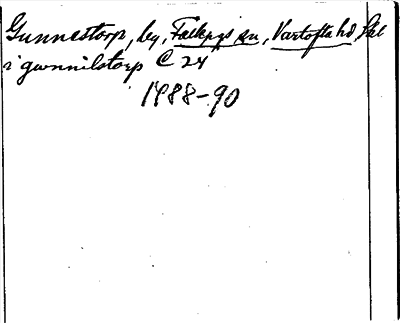 Gunnestorp, by, Falköps sn, Vartofta hd, Skl
i gwnnilstorp C 24
1488-90